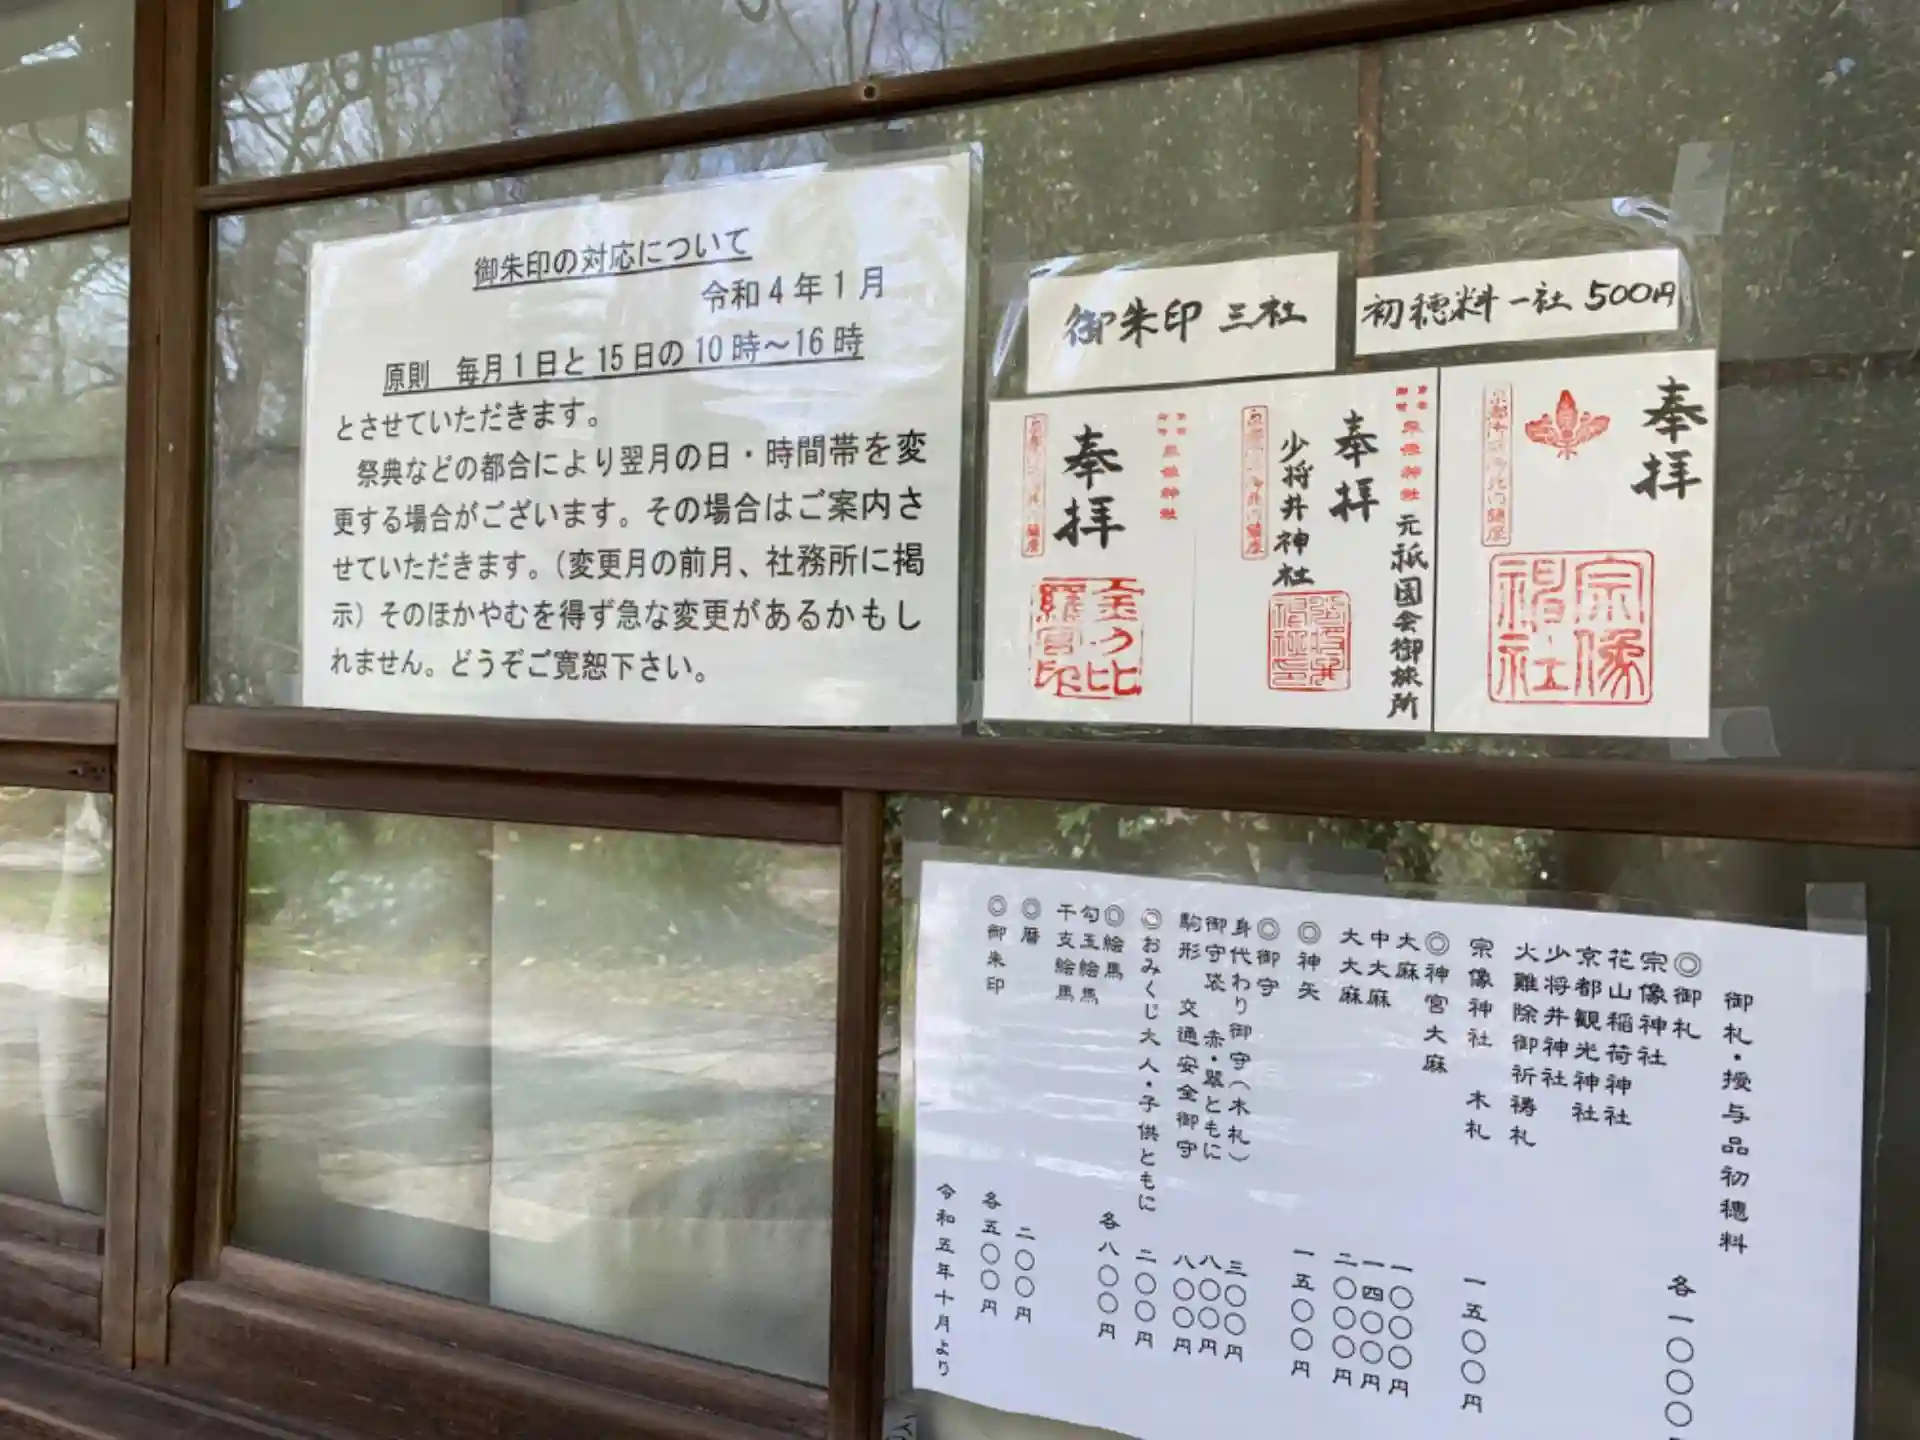 御朱印の対応について
令和4年1月
原則　毎月1日と15日の10時～16時
とさせていただきます。
祭典などの都合により翌月の日・時間帯を変
更する場合がございます。その場合はご案内さ
せていただきます。(変更月の前月、社務所に掲
示）そのほかやむを得ず急な変更があるかもし
れません。どうぞご寛恕下さい。
御朱印 三社
初穂料一社 500円
奉拝
宗像神社
奉拝
元祇園会御旅所
少将井神社
奉拝
御札・授与品初穂料
◎御札
宗像神社
花山稲荷神社
京都観光神社
少将井神社
火難除御祈祷札
各一〇〇〇
宗像神社 木札
一五〇〇円
◎神宮大麻
大麻 一〇〇〇円
中大麻 一四〇〇円
大大麻 二〇〇〇円
◎神矢 一五〇〇円
◎御守
身代わり御守（木札） 三〇〇円
御守袋 赤・紫ともに 八〇〇円
駒形 交通安全御守 八〇〇円
◎おみくじ大人・子供ともに 二〇〇円
◎絵馬
勾玉絵馬
干支絵馬
各八〇〇円
◎暦 二〇〇円
◎御朱印 各五〇〇円
令和五年十月より